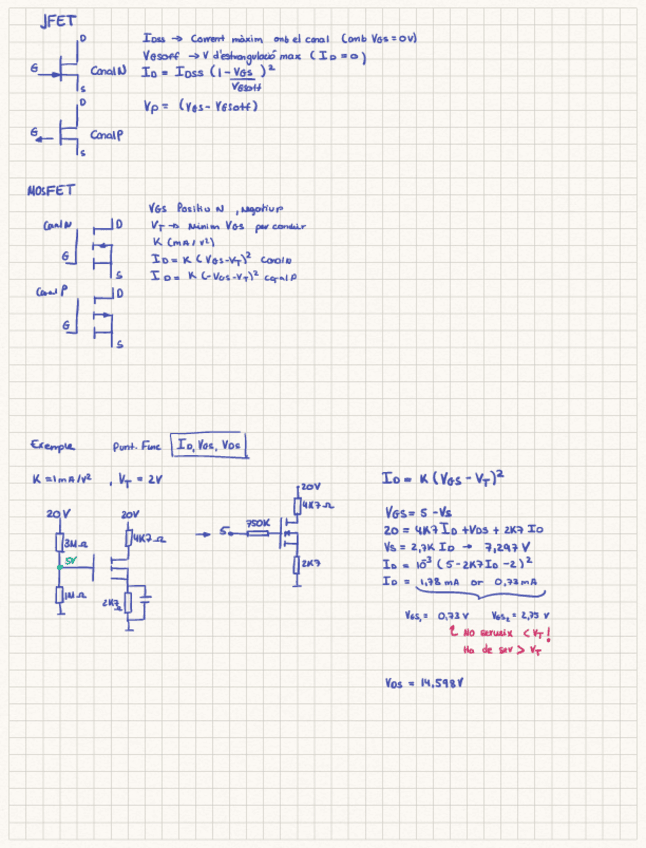 JFET
D
G
Canal N
S
IDSS → Corrent màxim amb el canal (amb VGS = 0V)
VGSoff → V d'estrangulació max (ID = 0)
ID = IDSS (1 - VGS/VGSoff)²
D
G
Canal P
S
VP = (VGS - VGSoff)
MOSFET
Canal N
D
G
S
VGS Positiu N, Negatiu P
VT → Mínim VGS per conduir
K (mA/V²)
ID = K (VGS - VT)² Canal N
ID = K (-VGS - VT)² Canal P
Canal P
D
G
S
Exemple Punt. Func ID, VGS, VDS
K = 1mA/V² , VT = 2V
20V
3MΩ
5V
1MΩ
20V
4K7Ω
2K7Ω
→ 5
750K
20V
4K7Ω
2K7
ID = K (VGS - VT)²
VGS = 5 - VS
20 = 4K7 ID + VDS + 2K7 ID
VS = 2,7K ID → 7,247 V
ID = 10⁻³ (5 - 2K7 ID - 2)²
ID = 1,78 mA or 0,73 mA
VGS₁ = 0,73 V VGS₂ = 2,75 V
No serveix < VT!
Ha de ser > VT
VDS = 14,598V